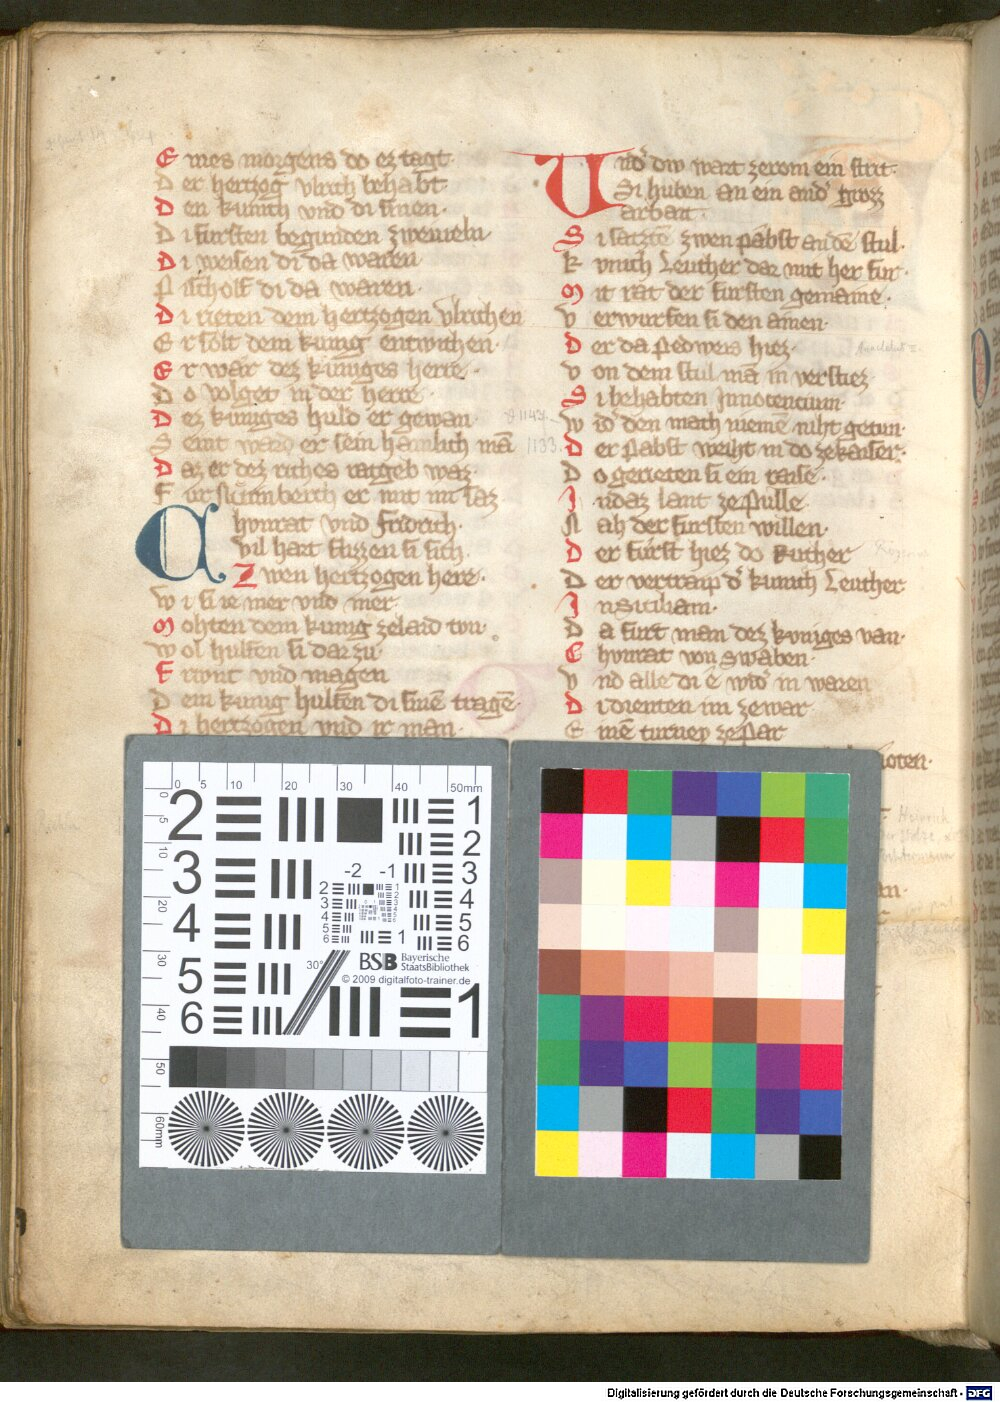 E ines morgens do ez tagt
D er hertzog vlrich behabt
D en kunich vnd di sinen
D i fursten begunden zweiueln
D i weisen di da waren
P ischolf di da waren
D i rieten dem hertzogen vlrichen
E r solt dem kunig entwichen
E r war dez kuniges herre
D o volget in der herre
D ez kuniges huld er gewan
S eint ward er sein haimlich mā
D az er dez riches ratgeb waz
F ur
berch er mit im saz
Chunrat vnd Fridrich
vil hart flizzen si sich
Z wen hertzogen here
w i si ie mer vnd mer
M ohten dem kunig zelaid tun
w ol hulfen si dar zu
F riunt vnd magen
D em kunig hulfen di sinē tragē
D i hertzogen vnd ir man
Vnd diw wart zerom ein strit
Si huben an ein and' grozz
arbait
S i satzte zwen pabst an dē stul
k vnich Leuther dar mit her fur
M it rat der fursten gemaine
v erwurfen si den ainen
D er da pedweis hiez
v on dem stul mā in verstiez
S i behabten Innocentium
w id' den mach niemē niht getun
D er pabst weiht in do ze kaiser
D o gerieten si ein raise
I n daz lant ze pulle
N ah der fursten willen
D er furst hiez do Ruther
D er vertraip d' kunich Leuther
I n Siciliam
D a furt man dez kuniges van
C hunrat von Swaben
v nd alle di ē wid' in waren
D i dienten im zewar
E inē turney ze par
2 3 4 5 6
0 5 10 20 30 40 50mm
1 2 3 4 5 6
-2 -1
30°
BSB Bayerische
StaatsBibliothek
© 2009 digitalfoto-trainer.de
1
0 5 10 20 30 40 50 60mm
Heinrich
Digitalisierung gefördert durch die Deutsche Forschungsgemeinschaft - DFG